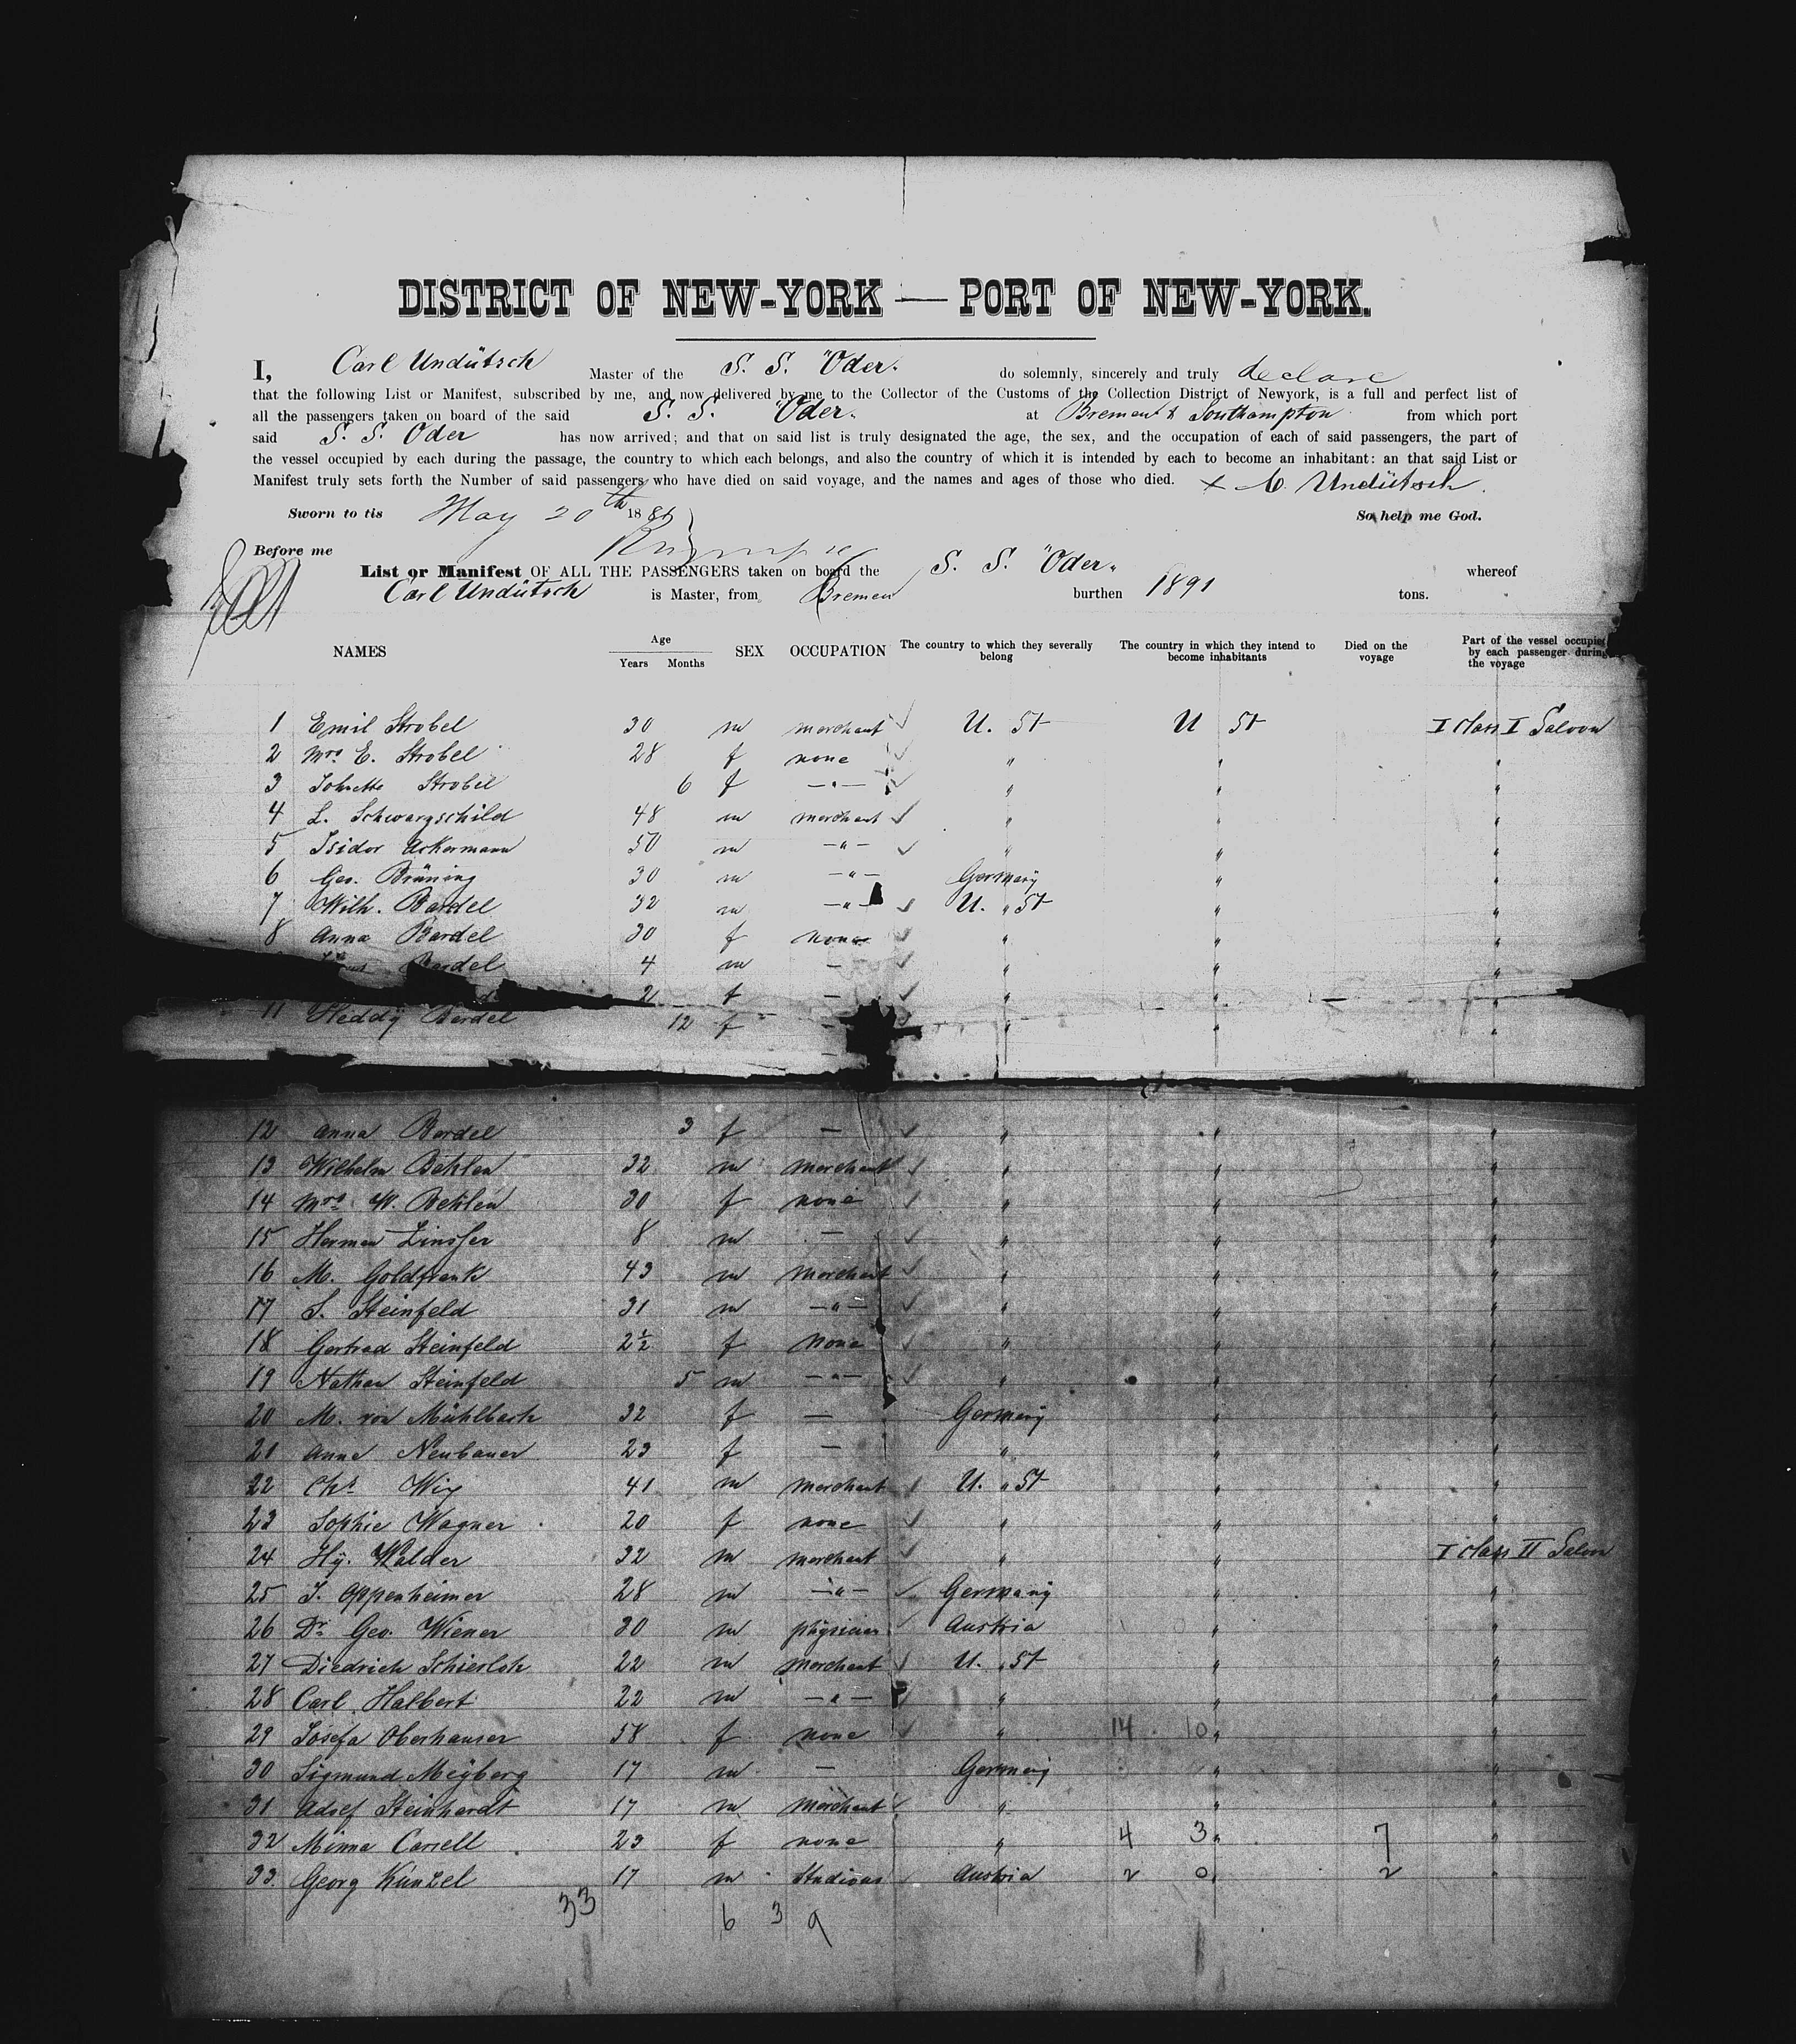 DISTRICT OF NEW-YORK — PORT OF NEW-YORK.
I, Carl Undütsch Master of the S. S. "Oder. do solemnly, sincerely and truly declare
that the following List or Manifest, subscribed by me, and now delivered by me to the Collector of the Customs of the Collection District of Newyork, is a full and perfect list of
all the passengers taken on board of the said S. S. "Oder. at Bremen & Southampton from which port
said S. S. Oder has now arrived; and that on said list is truly designated the age, the sex, and the occupation of each of said passengers, the part of
the vessel occupied by each during the passage, the country to which each belongs, and also the country of which it is intended by each to become an inhabitant: an that said List or
Manifest truly sets forth the Number of said passengers who have died on said voyage, and the names and ages of those who died. x C. Undütsch.
Sworn to tis May 20th 1886 So help me God.
Before me
List or Manifest OF ALL THE PASSENGERS taken on board the S. S. "Oder" whereof
Carl Undütsch is Master, from Bremen burthen 1891 tons.
NAMES Age Years Months SEX OCCUPATION The country to which they severally belong The country in which they intend to become inhabitants Died on the voyage Part of the vessel occupied by each passenger during the voyage
1 Emil Strobel 30 m merchant U. St U St I class I Saloon
2 Mrs. E. Strobel 28 f none " " "
3 Strobel 6 f —"— " " "
4 L. Schwarzschild 48 m merchant " " "
5 Isidor Ackermann 50 m —"— " " "
6 Geo. Brüning 30 m —"— Germany " "
7 Wilh. Bardel 32 m —"— U. St " "
8 Anna Bardel 30 f none " " "
Bardel 4 m — " " "
2 f — " " "
11 Heddy Bardel 12 f — " " "
12 Anna Bardel 3 f — " " "
13 Wilhelm Behlen 32 m merchant " " "
14 Mrs. W. Behlen 30 f none " " "
15 Herman Zinsser 8 m — " " "
16 M. Goldfrank 43 m merchant " " "
17 S. Steinfeld 31 m —"— " " "
18 Gertrud Steinfeld 2½ f none " " "
19 Nathan Steinfeld 5 m —"— " " "
20 M. von Mühlbach 32 f — Germany " "
21 Anna Neubauer 23 f — " " "
22 Chs. 41 m merchant U. St " "
23 Sophie Wagner 20 f none " " "
24 Hy. Walder 32 m merchant " " I class II Saloon
25 J. Oppenheimer 28 m —"— Germany " "
26 Dr. Geo. Wiener 30 m physician Austria " "
27 Diedrich Schierloh 22 m merchant U. St " "
28 Carl Halbert 22 m —"— " " "
29 Josefa Oberhauser 58 f none " 14 10 " "
30 Sigmund Meyberg 17 m — Germany " "
31 Adolf Steinhardt 17 m merchant " " "
32 Minna Carrell 23 f none " 4 3 " 7 "
33. Georg Künzel 17 m Studious Austria 2 0 " 2 "
33 6 3 9